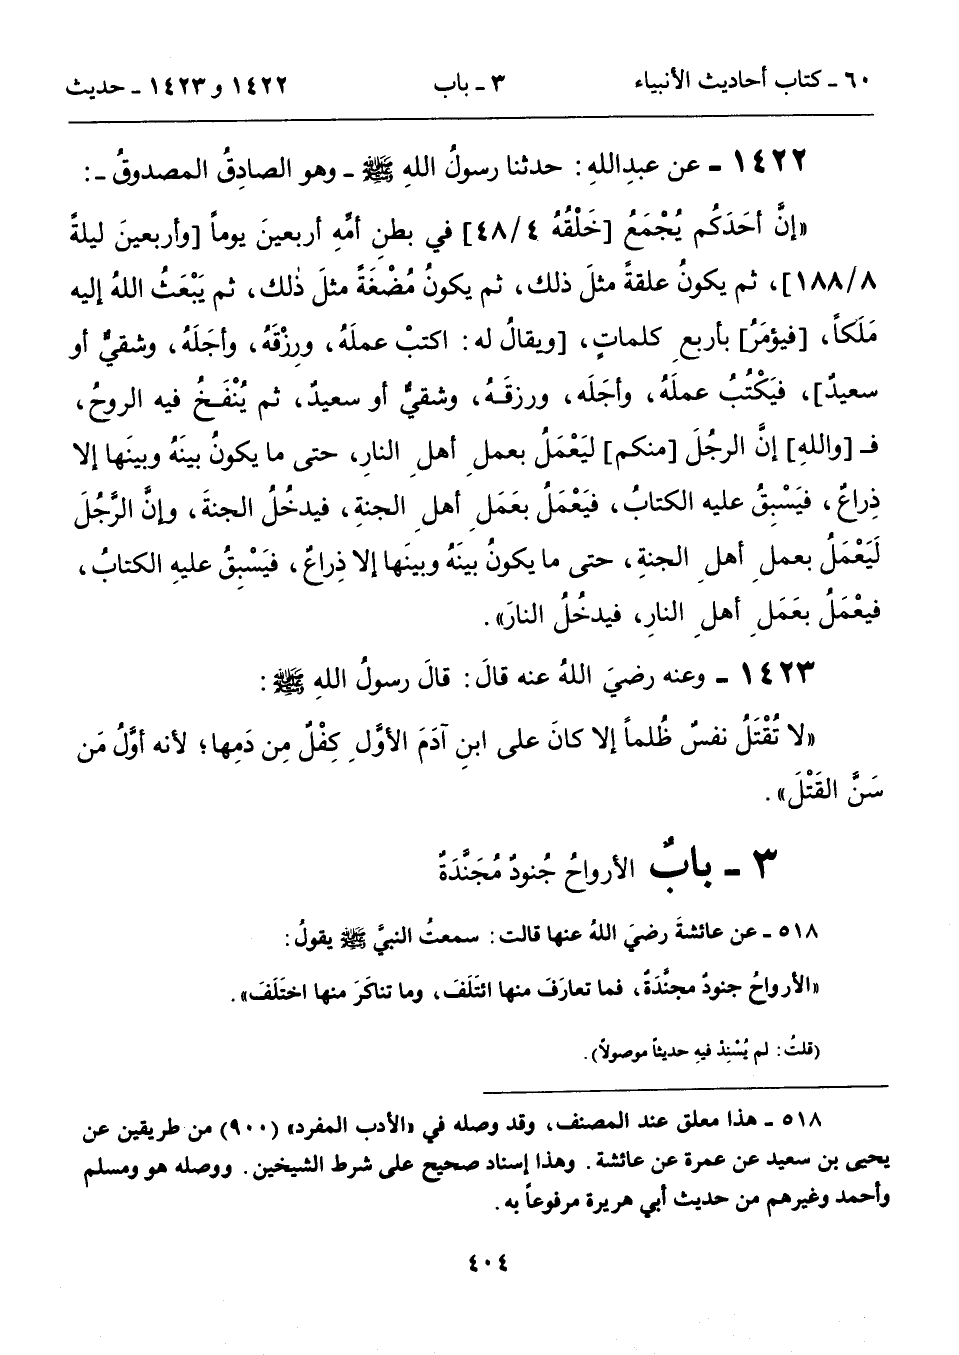 ٦٠ ـ كتاب أحاديث الأنبياء ٣ ـ باب ١٤٢٢ و ١٤٢٣ ـ حديث
١٤٢٢ ـ عن عبدِاللهِ: حدثنا رسولُ اللهِ ﷺ ـ وهو الصادِقُ المصدوقُ ـ:
«إنَّ أحَدَكُم يُجْمَعُ [خَلْقُهُ ٤/ ٤٨] في بطنِ أمِّهِ أربعينَ يوماً [وأربعينَ ليلةً
٨/ ١٨٨]، ثم يكونُ علقةً مثلَ ذلك، ثم يكونُ مُضْغَةً مثلَ ذٰلك، ثم يَبْعَثُ اللهُ إليه
مَلَكاً، [فيؤمَرُ] بأربعِ كلماتٍ، [ويقالُ له: اكتبْ عملَهُ، ورِزْقَهُ، وأجَلَهُ، وشقيٌّ أو
سعيدٌ]، فيَكْتُبُ عملَهُ، وأجَلَه، ورزقَـهُ، وشقيٌّ أو سعيدٌ، ثم يُنْفَـخُ فيه الروحُ،
فـ [واللهِ] إنَّ الرجُلَ [منكم] ليَعْمَلُ بعملِ أهلِ النارِ، حتى ما يكونُ بينَهُ وبينَها إلا
ذِراعٌ، فيَسْبِقُ عليه الكتابُ، فيَعْمَلُ بعَمَلِ أهلِ الجنةِ، فيدخُلُ الجنةَ، وإنَّ الرَّجُلَ
لَيَعْمَلُ بعملِ أهلِ الجنةِ، حتى ما يكونُ بينَهُ وبينَها إلا ذِراعٌ، فيَسْبِقُ عليهِ الكتابُ،
فيعْمَلُ بعَمَلِ أهلِ النارِ، فيدخُلُ النارَ».
١٤٢٣ ـ وعنه رضيَ اللهُ عنه قالَ: قالَ رسولُ اللهِ ﷺ:
«لا تُقْتَلُ نفسٌ ظُلماً إلا كانَ على ابنِ آدَمَ الأوَّلِ كِفْلٌ مِن دَمِها؛ لأنه أوَّلُ مَن
سَنَّ القَتْلَ».
٣ ـ بابٌ الأرواحُ جُنودٌ مُجَنَّدَةٌ
٥١٨ ـ عن عائشةَ رضيَ اللهُ عنها قالت: سمعتُ النبيَّ ﷺ يقولُ:
«الأرواحُ جنودٌ مجنَّدَةٌ، فما تعارَفَ منها ائتَلَفَ، وما تناكَرَ منها اختَلَفَ».
(قلتُ: لم يُسْنِدْ فيهِ حديثاً موصولاً).
٥١٨ ـ هذا معلق عند المصنف، وقد وصله في «الأدب المفرد» (٩٠٠) من طريقين عن
يحيى بن سعيد عن عمرة عن عائشة. وهذا إسناد صحيح على شرط الشيخين. ووصله هو ومسلم
وأحمد وغيرهم من حديث أبي هريرة مرفوعاً به.
٤٠٤